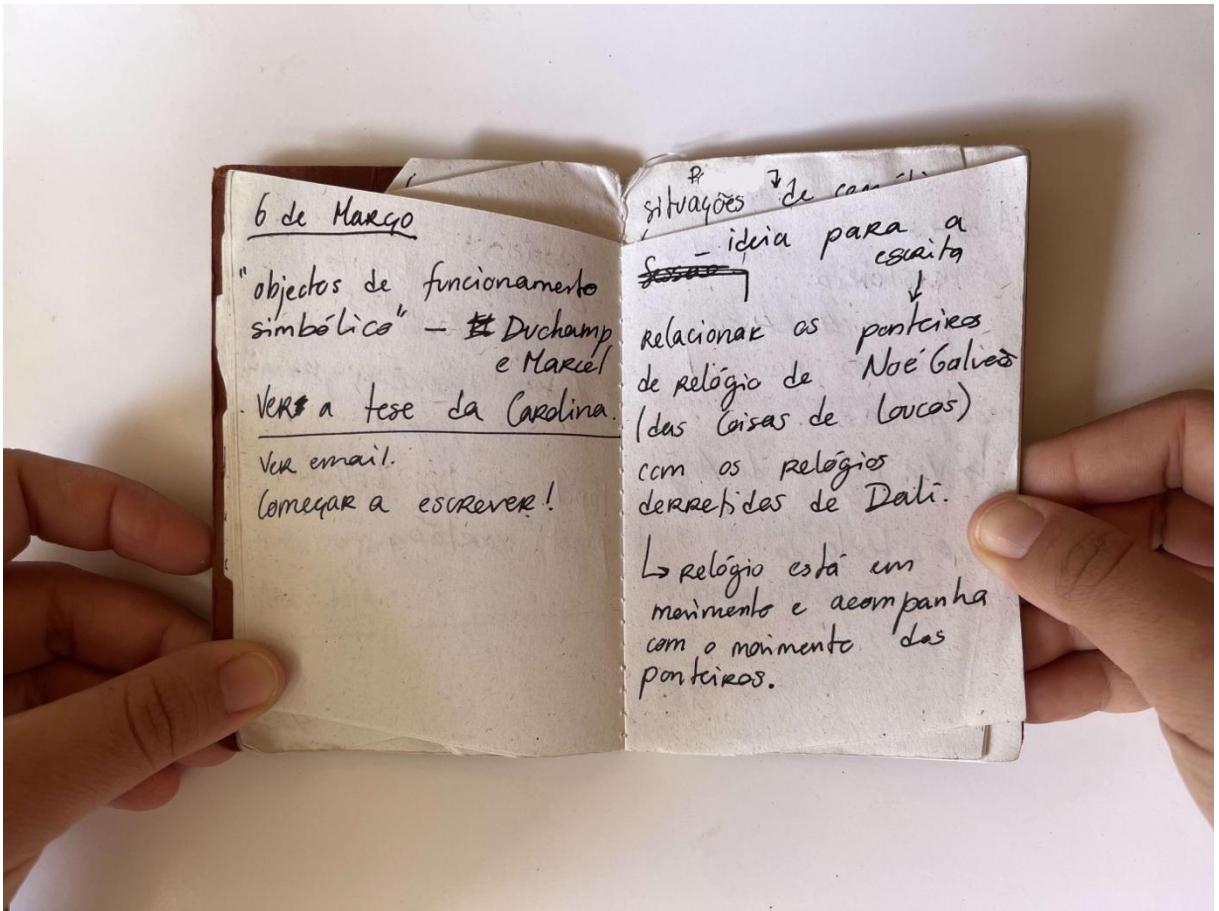 6 de Março
"objectos de funcionamento
simbólico" – Duchamp
e Marcel
Ver a tese da Carolina.
Ver email.
Começar a escrever!
situações de
– ideia para a
escrita
relacionar os ponteiros
de relógio de Noé Galvão
(das Coisas de Loucos)
com os relógios
derretidos de Dali.
↳ relógio está em
movimento e acompanha
com o movimento dos
ponteiros.